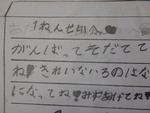 1ねんせい
がんばってそだてて
ね きれいないろのはな
になってね みずあげてね